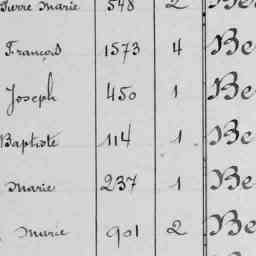 Pierre Marie 548 2 Be
François 1573 4 Be
Joseph 450 1 Be
Baptiste 114 1 Be
Marie 237 1 Be
Marie 901 2 Be